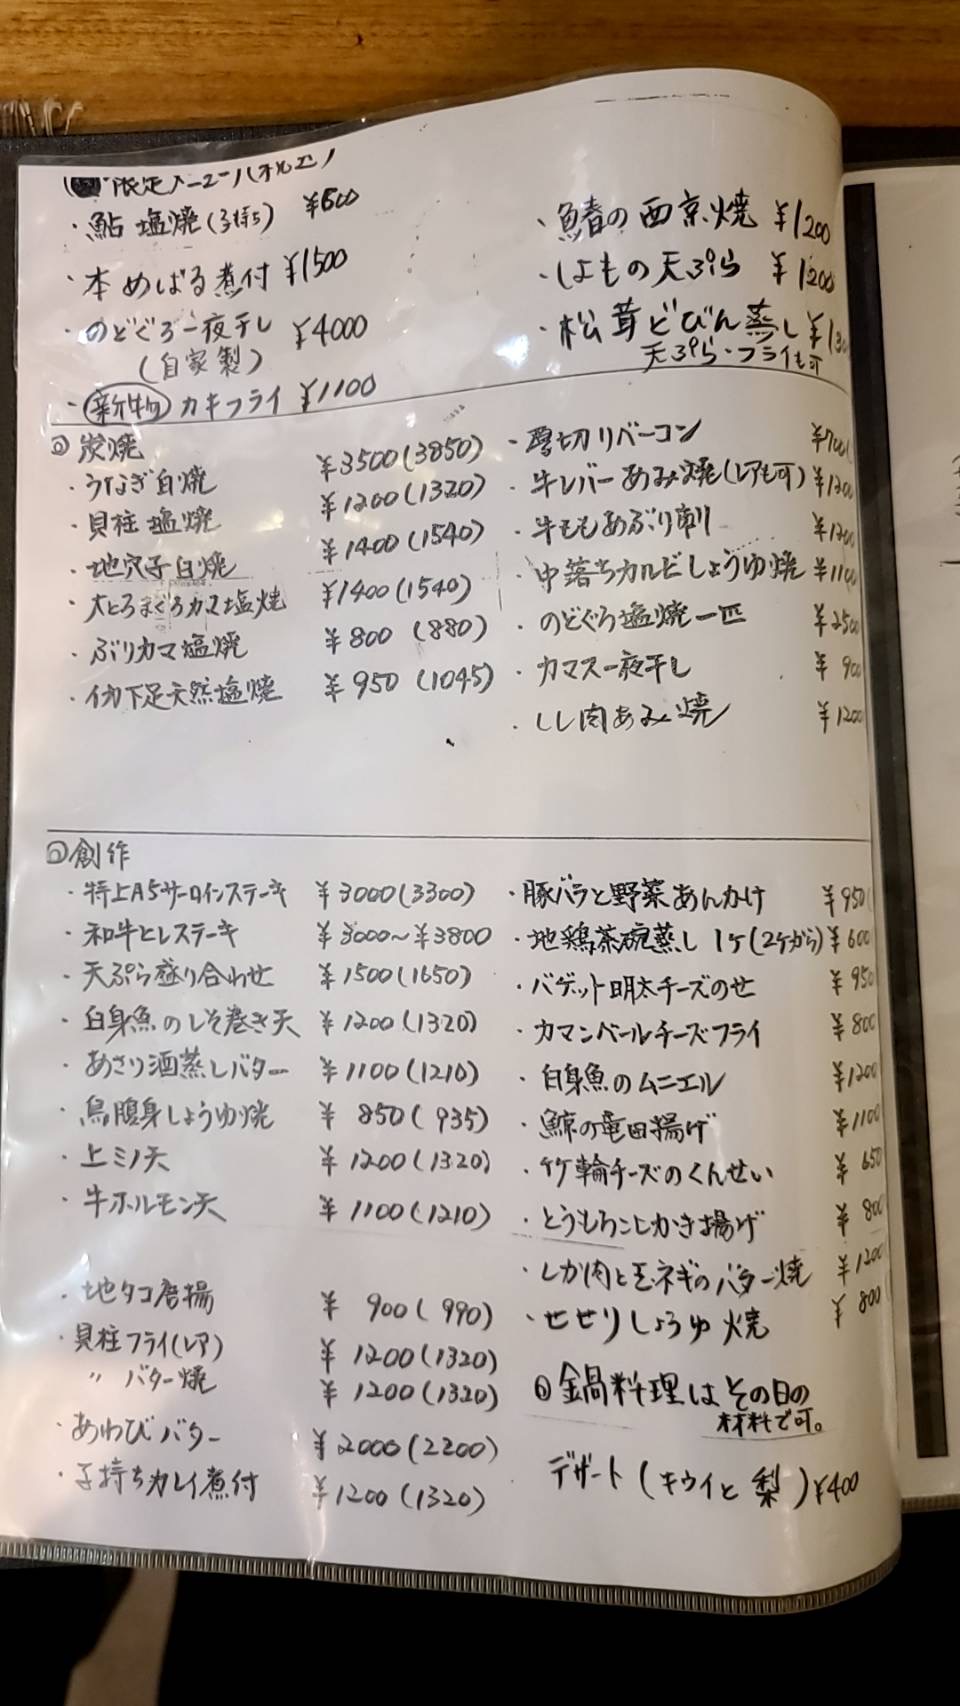 限定メニュー
・鮎塩焼(子持ち) ¥600
・本めばる煮付 ¥1500
・のどぐろ一夜干し ¥4000
(自家製)
・新物 カキフライ ¥1100
・鰆の西京焼 ¥1200
・しょもの天ぷら ¥1200
・松茸どびん蒸し
天ぷら・フライも可
◎炭焼
・うなぎ白焼 ¥3500(3850)
・貝柱塩焼 ¥1200(1320)
・地穴子白焼 ¥1400(1540)
・大とろまぐろカマ塩焼 ¥1400(1540)
・ぶりカマ塩焼 ¥800(880)
・イカ下足天然塩焼 ¥950(1045)
・厚切りベーコン ¥700
・牛レバーあみ焼(レアも可) ¥1200
・牛ももあぶり刺 ¥1200
・中落ちカルビしょうゆ焼 ¥1100
・のどぐろ塩焼一匹 ¥2500
・カマス一夜干し ¥900
・しし肉あみ焼 ¥1200
◎創作
・特上A5サーロインステーキ ¥3000(3300)
・和牛ヒレステーキ ¥3000～¥3800
・天ぷら盛り合わせ ¥1500(1650)
・白身魚のしそ巻き天 ¥1200(1320)
・あさり酒蒸しバター ¥1100(1210)
・鳥腹身しょうゆ焼 ¥850(935)
・上ミノ天 ¥1200(1320)
・牛ホルモン天 ¥1100(1210)
・地タコ唐揚 ¥900(990)
・貝柱フライ(レア) ¥1200(1320)
〃 バター焼 ¥1200(1320)
・あわびバター ¥2000(2200)
・子持ちカレイ煮付 ¥1200(1320)
・豚バラと野菜あんかけ ¥950
・地鶏茶碗蒸し 1ケ(2ケから) ¥600
・バゲット明太チーズのせ ¥950
・カマンベールチーズフライ ¥800
・白身魚のムニエル ¥1200
・鯨の竜田揚げ ¥1100
・竹輪チーズのくんせい ¥650
・とうもろこしかき揚げ ¥800
・しか肉と玉ネギのバター焼 ¥1200
・せせりしょうゆ焼 ¥800
◎鍋料理はその日の
材料で可。
デザート(キウイと梨) ¥400